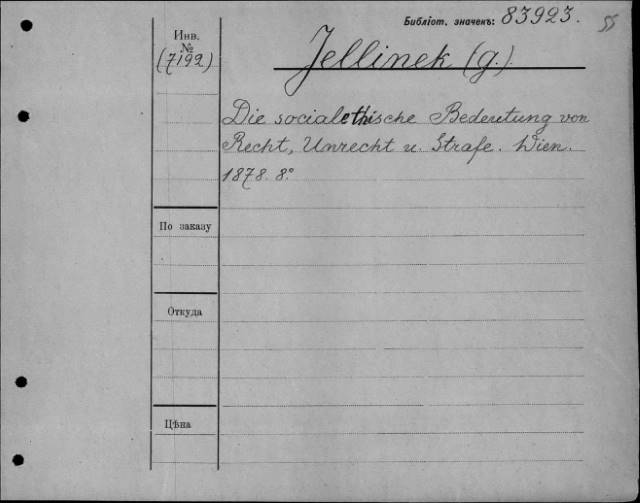 Библіот. значекъ: 83923.
55
Инв.
№
(7192)
Jellinek (G.).
Die socialethische Bedeutung von
Recht, Unrecht u. Strafe. Wien.
1878. 8°.
По заказу
Откуда
Цѣна